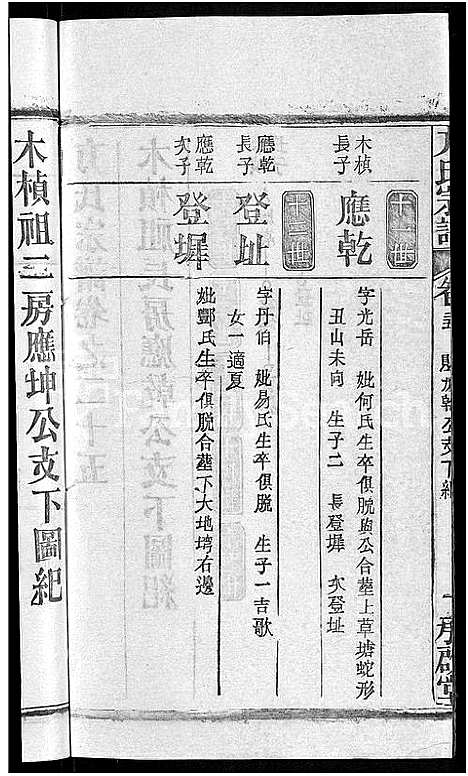 十一世
木楨長子
應乾
字光岳 妣何氏生卒俱脱與公合塟上草塘蛇形
丑山未向 生子二 長登墀 次登址
十二世
應乾長子
登址
字丹伯 妣易氏生卒俱脱 生子一吉歌
女一適夏
應乾次子
登墀
妣酆氏生卒俱脱合塟下大地塆右邊
木楨祖二房應坤公支下圖紀